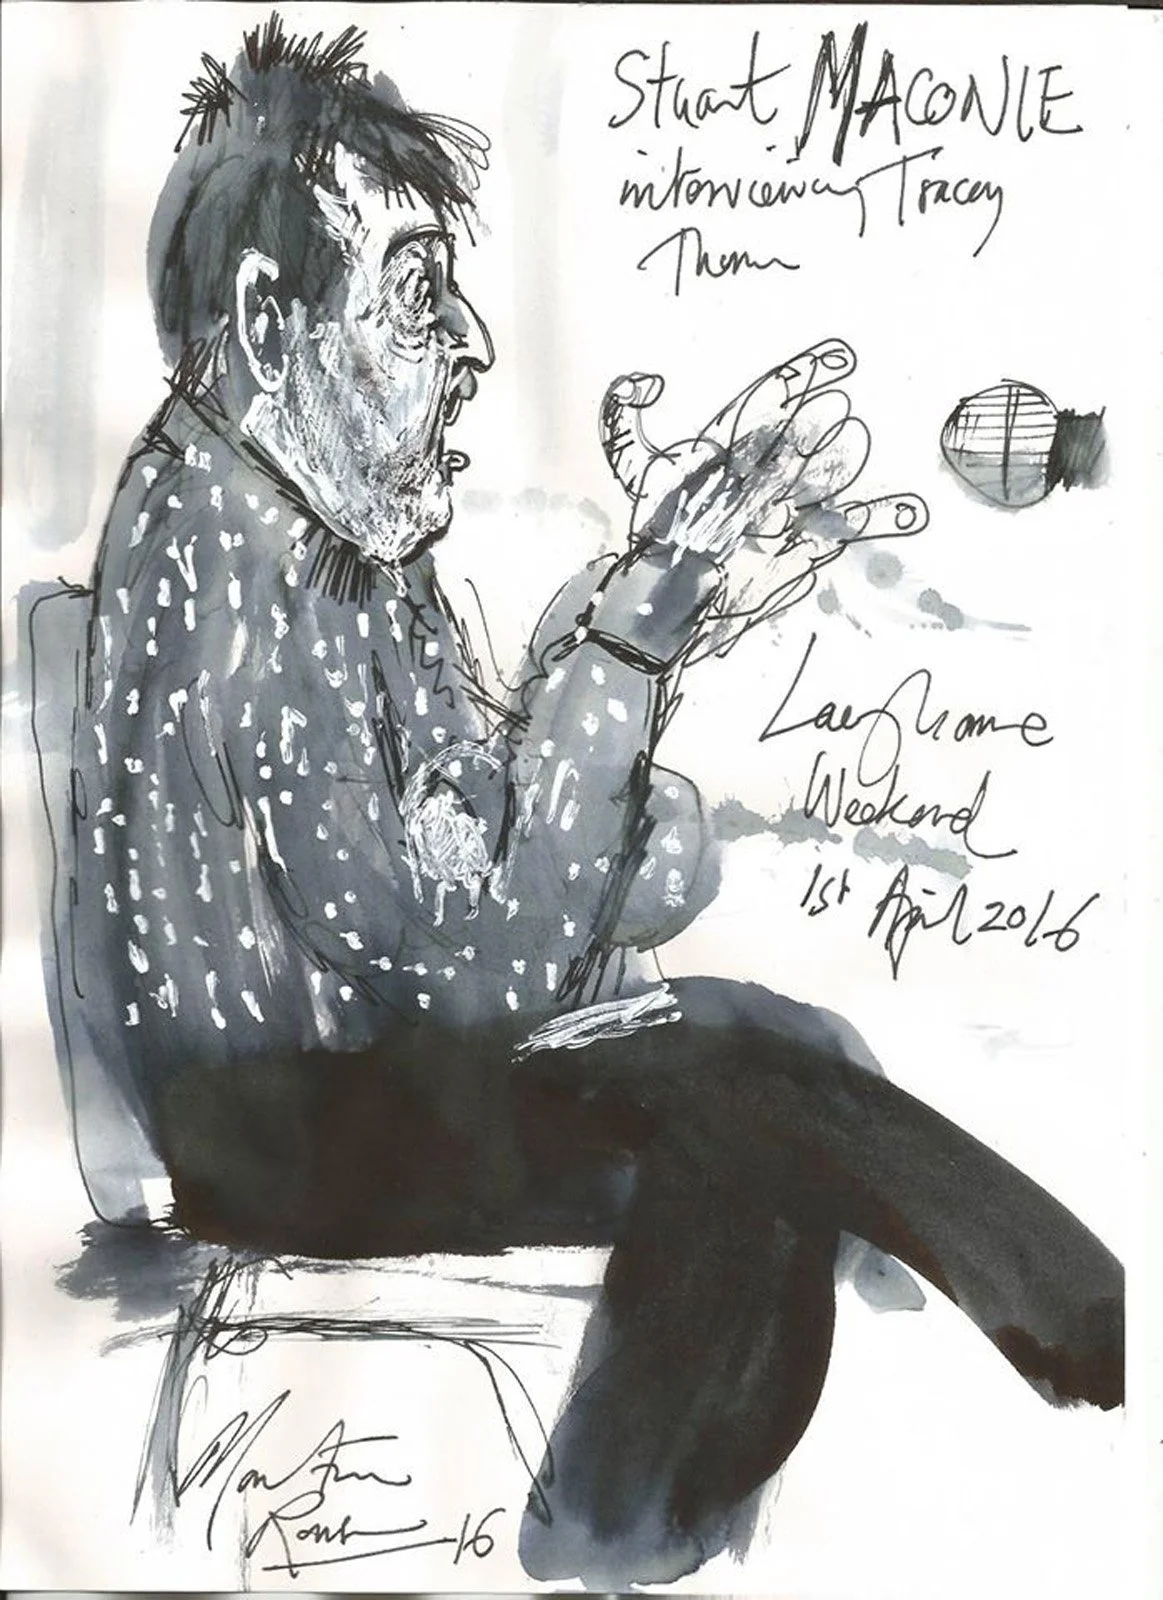 Stuart MACONIE
interviewing Tracey
Thorn
Laugharne
Weekend
1st April 2016
Martin
Rowson 16